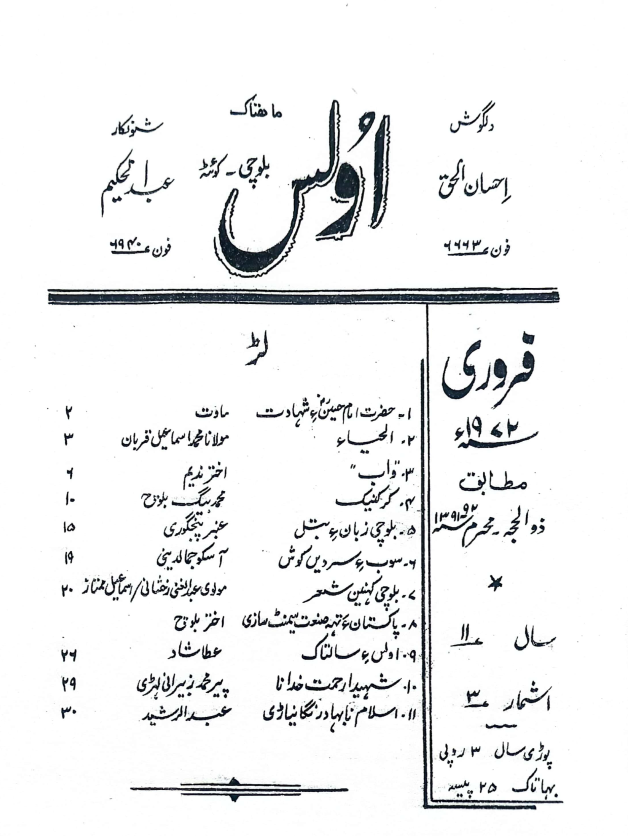 ماهتاک
اُولس
بلوچی - کوئٹہ
دلگوش
احسان الحق
فون ۶۶۶۳
شونکار
عبدالحکیم
فون ۶۹۴۰
فروری
سنہ ۱۹۷۲ء
مطابق
ذوالحجہ - محرم سنہ ۱۳۹۱-۹۲
سال ۱۱
اشمار ۳
پوڑی سال ۳ روپی
بہاتاک ۲۵ پیسہ
لڑ
۱- حضرت امام حسینؓ ءِ شہادت مادت ۲
۲- الحیاء مولانا محمد اسماعیل قربان ۳
۳- "واب" اختر ندیم ۶
۴- کرکنیک محمد بیگ بلوچ ۱۰
۵- بلوچی زبان ءِ بتل عنبر پنجگوری ۱۵
۶- سوب ءِ سردیں کوش آسکو جمالدینی ۱۹
۷- بلوچی کہنیں شعر مولوی عبدالغنی رخشانی / اسماعیل ممتاز ۲۰
۸- پاکستان ءَ تہہ صنعت سیمنٹ سازی اختر بلوچ
۹- اولس ءِ سالتاک عطا شاد ۲۶
۱۰- شہید ارحمت خدانا پیر محمد زبیرانی لہڑی ۲۹
۱۱- اسلام نا بہادر نگا نیاڑی عبدالرشید ۳۰